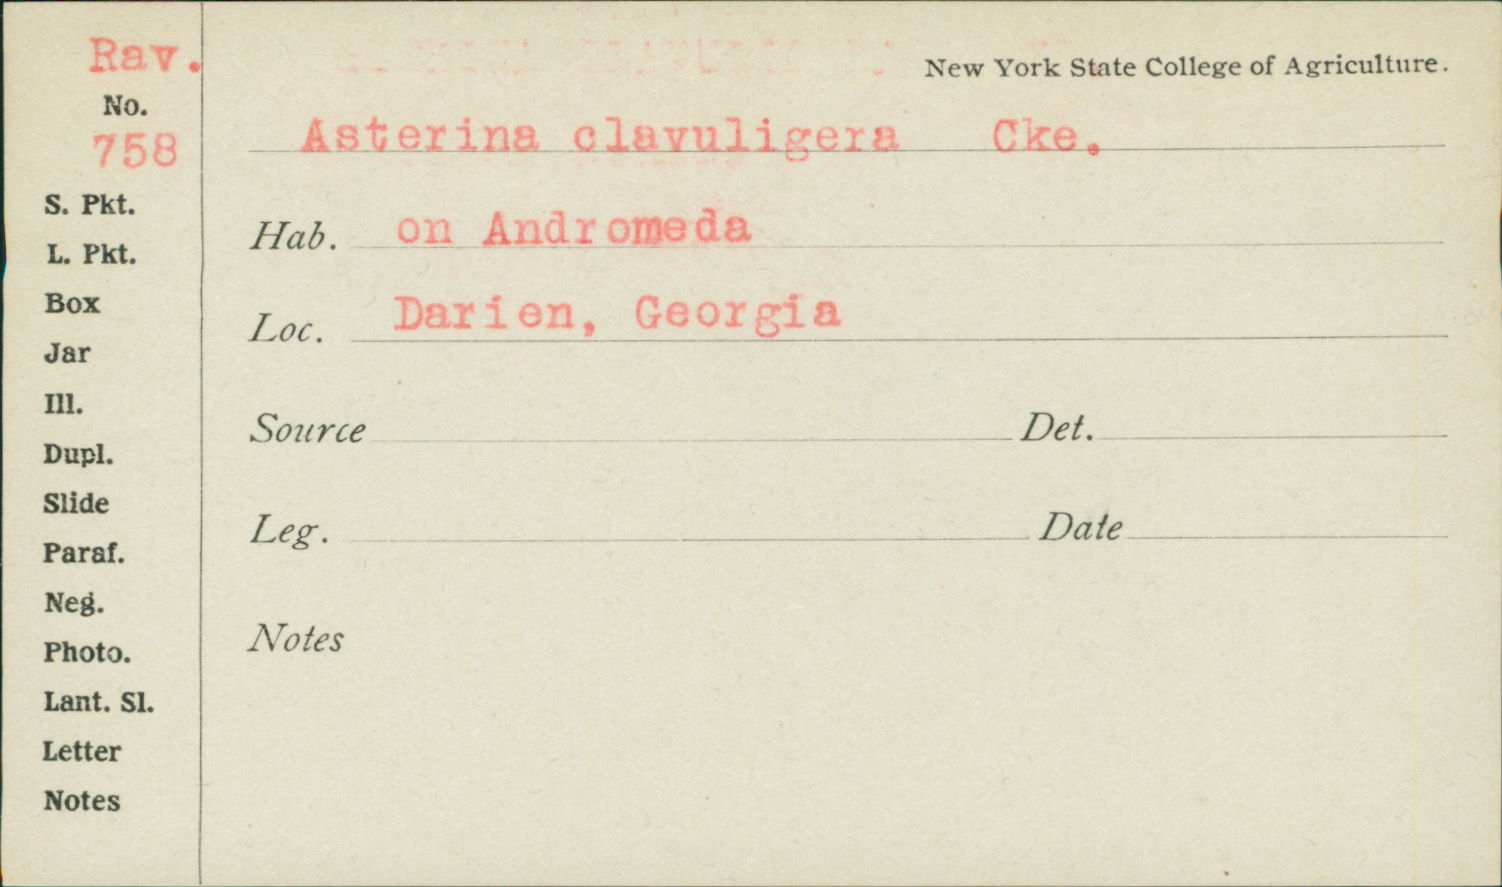 Rav.
No.
758
S. Pkt.
L. Pkt.
Box
Jar
Ill.
Dupl.
Slide
Paraf.
Neg.
Photo.
Lant. Sl.
Letter
Notes
New York State College of Agriculture.
Asterina clavuligera Cke.
Hab. on Andromeda
Loc. Darien, Georgia
Source Det.
Leg. Date
Notes